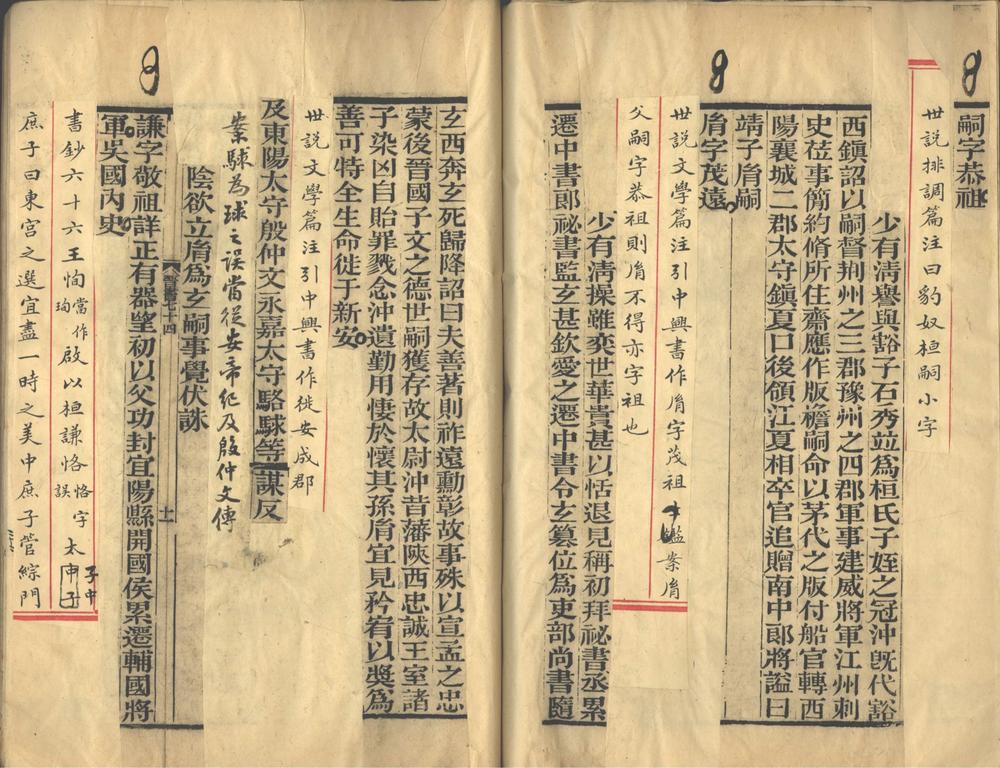 8
嗣字恭祖
世説排調篇注曰豹奴桓嗣小字
少有清譽與豁子石秀竝爲桓氏子姪之冠沖旣代豁
西鎭詔以嗣督荆州之三郡豫州之四郡軍事建威將軍江州刺
史莅事簡約脩所住齋應作版檐嗣命以茅代之版付船官轉西
陽襄城二郡太守鎭夏口後領江夏相卒官追贈南中郞將謚曰
靖子胤嗣
8
胤字茂遠
世説文學篇注引中興書作胤字茂祖 鑑案胤
父嗣字恭祖則胤不得亦字祖也
少有淸操雖奕世華貴甚以恬退見稱初拜祕書丞累
遷中書郞祕書監玄甚欽愛之遷中書令玄簒位爲吏部尚書隨
玄西奔玄死歸降詔曰夫善著則祚遠勳彰故事殊以宣孟之忠
蒙後晉國子文之德世嗣獲存故太尉沖昔藩陝西忠誠王室諸
子染凶自貽罪戮念沖遺勤用悽於懷其孫胤宜見矜宥以奬爲
善可特全生命徙于新安
世説文學篇注引中興書作徙安成郡
及東陽太守殷仲文永嘉太守駱球等謀反
案駱為球之誤當從安帝纪及殷仲文傳
陰欲立胤爲玄嗣事覺伏誅
晉書七十四
十一
9
謙字敬祖詳正有器望初以父功封宜陽縣開國侯累遷輔國將
軍吳國內史
書鈔六十六王恂當作珣啟以桓謙恪恪字誤太子中
庶子曰東宫之選宜盡一時之美中庶子管綜門